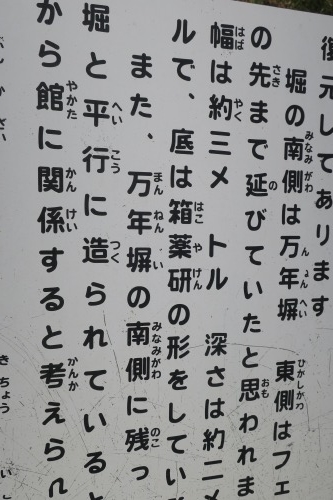 復元してあります
堀の南側は万年塀 東側はフェ
の先まで延びていたと思われま
幅は約三メートル 深さは約二メ
ルで、底は箱薬研の形をしてい
また、万年塀の南側に残っ
堀と平行に造られていると
から館に関係すると考えられ